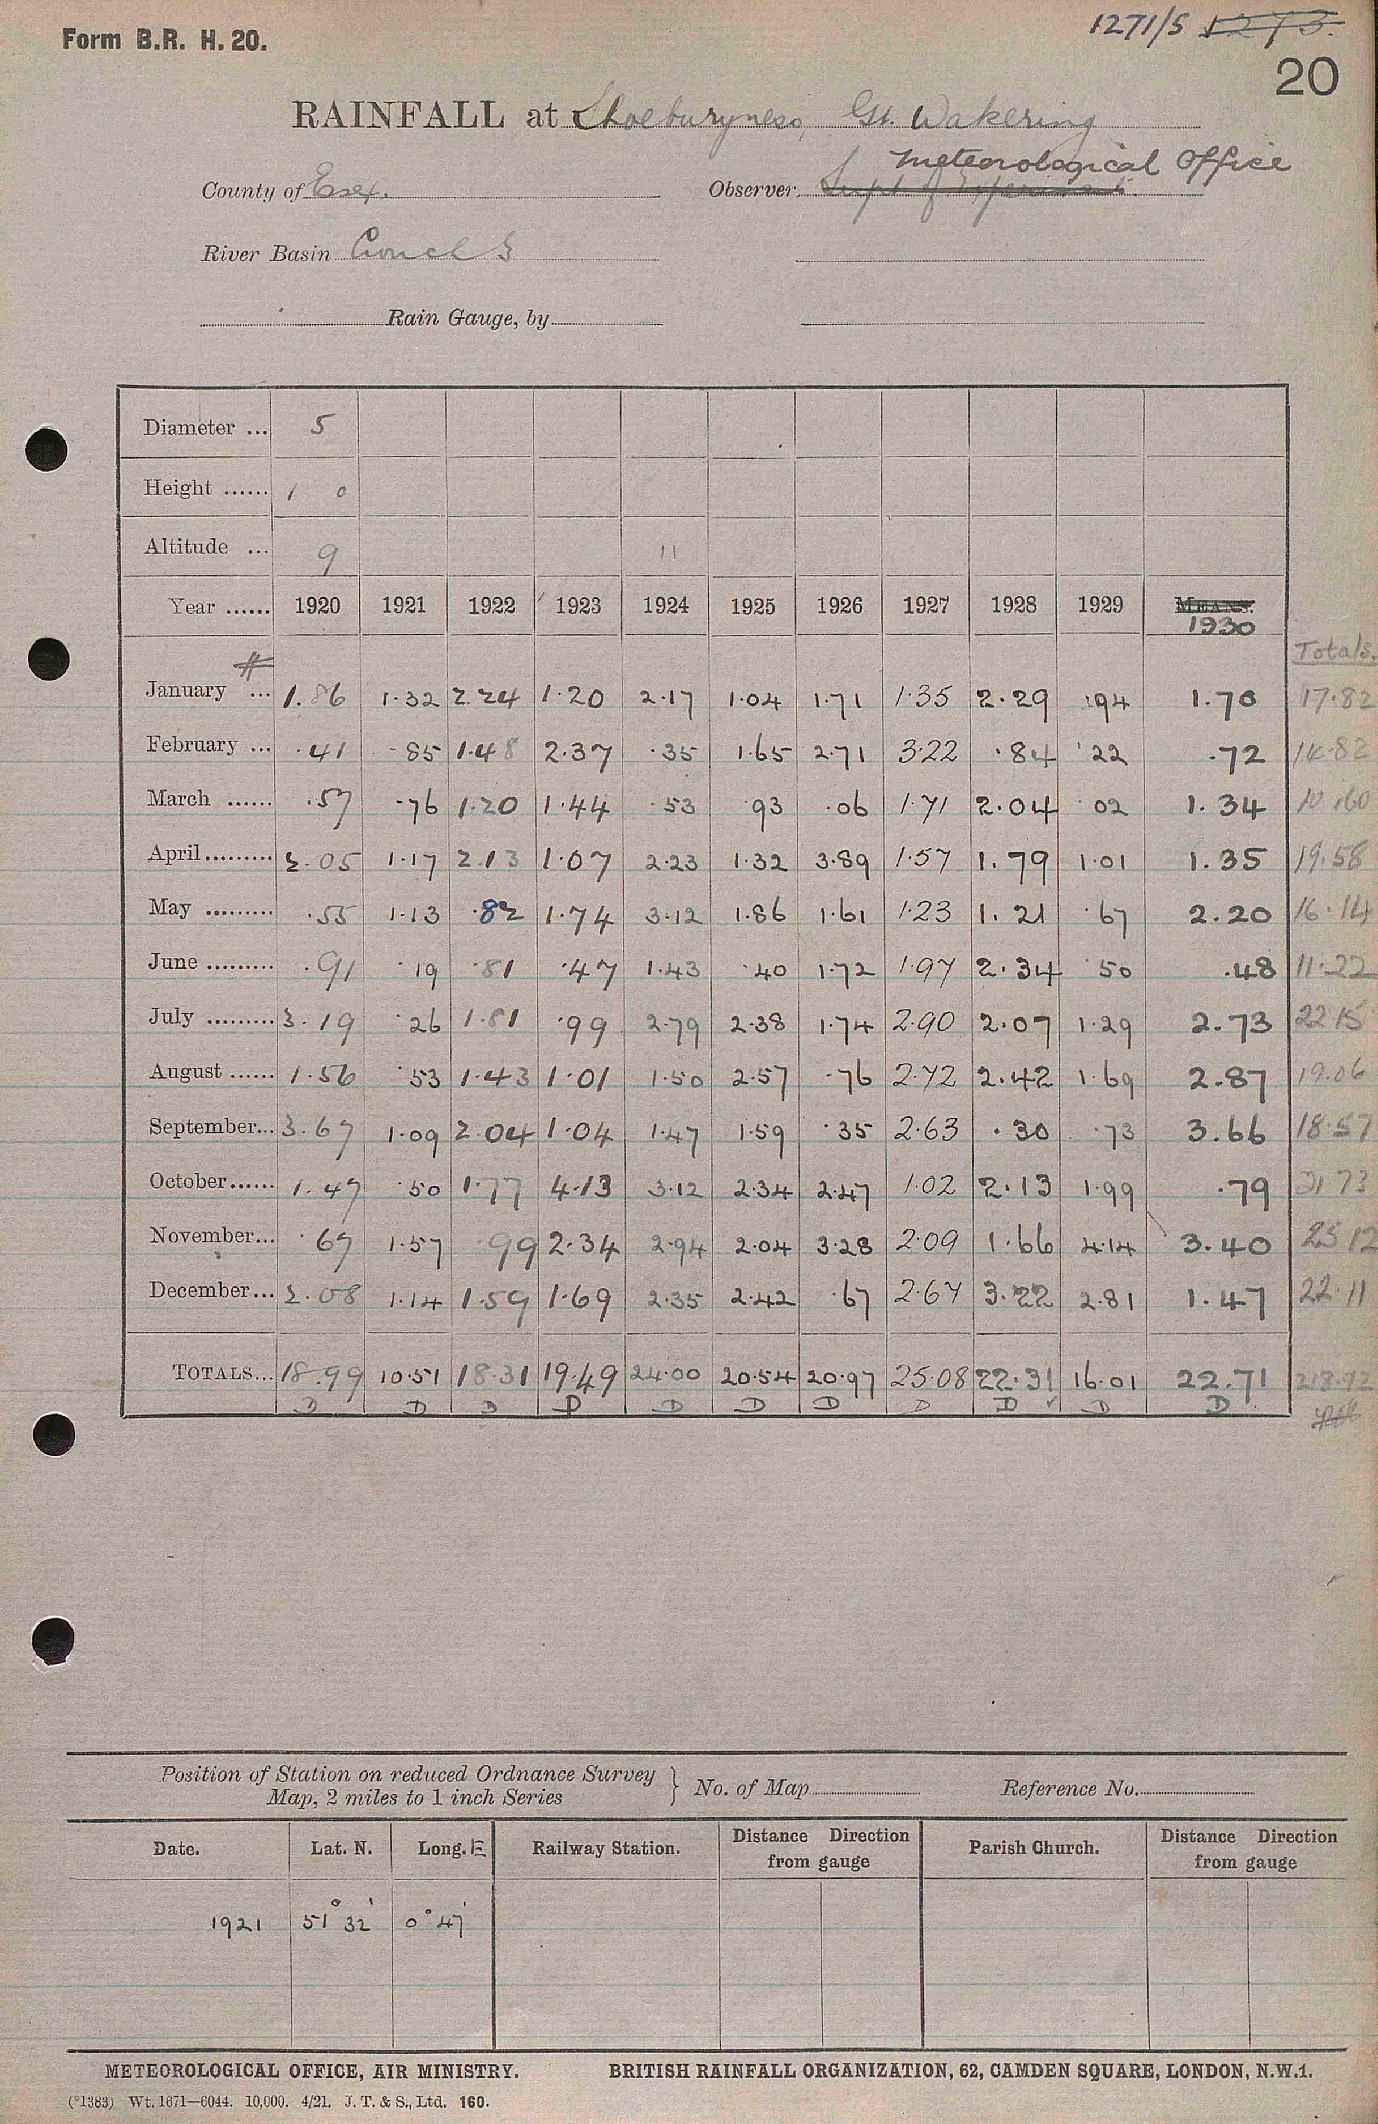 Form B.R. H. 20.
1271/5 1273.
20
RAINFALL at Shoeburyness, Gt. Wakering
Meteorological Office
County of Essex. Observer Supt of Experiments
River Basin Crouch &
Rain Gauge, by
Diameter ... 5
Height ...... 1 0
Altitude ... 9 11
Year ...... 1920 1921 1922 1923 1924 1925 1926 1927 1928 1929 MEANS.
1930
Totals.
January ... 1.86 1.32 2.24 1.20 2.17 1.04 1.71 1.35 2.29 .94 1.70 17.82
February ... .41 .85 1.48 2.37 .35 1.65 2.71 3.22 .84 .22 .72 14.82
March ...... .57 .76 1.20 1.44 .53 .93 .06 1.71 2.04 .02 1.34 10.60
April ......... 2.05 1.17 2.13 1.07 2.23 1.32 3.89 1.57 1.79 1.01 1.35 19.58
May ......... .55 1.13 .82 1.74 3.12 1.86 1.61 1.23 1.21 .67 2.20 16.14
June ......... .91 .19 .81 .47 1.43 .40 1.72 1.97 2.34 .50 .48 11.22
July ......... 3.19 .26 1.81 .99 2.79 2.38 1.74 2.90 2.07 1.29 2.73 22.15
August ...... 1.56 .53 1.43 1.01 1.50 2.57 .76 2.72 2.42 1.69 2.87 19.06
September... 3.67 1.09 2.04 1.04 1.47 1.59 .35 2.63 .30 .73 3.66 18.57
October ...... 1.47 .50 1.77 4.13 3.12 2.34 2.47 1.02 2.13 1.99 .79 21.73
November... .67 1.57 .99 2.34 2.94 2.04 3.28 2.09 1.66 4.14 3.40 25.12
December... 2.08 1.14 1.59 1.69 2.35 2.42 .67 2.67 3.22 2.81 1.47 22.11
TOTALS... 18.99 10.51 18.31 19.49 24.00 20.54 20.97 25.08 22.31 16.01 22.71 218.92
D D D D D D D D D D D
Position of Station on reduced Ordnance Survey
Map, 2 miles to 1 inch Series
No. of Map Reference No.
Date. Lat. N. Long. E Railway Station. Distance Direction from gauge Parish Church. Distance Direction from gauge
1921 51° 32' 0° 47'
METEOROLOGICAL OFFICE, AIR MINISTRY. BRITISH RAINFALL ORGANIZATION, 62, CAMDEN SQUARE, LONDON, N.W.1.
(*1383) Wt. 1671—6044. 10,000. 4/21. J. T. & S., Ltd. 160.